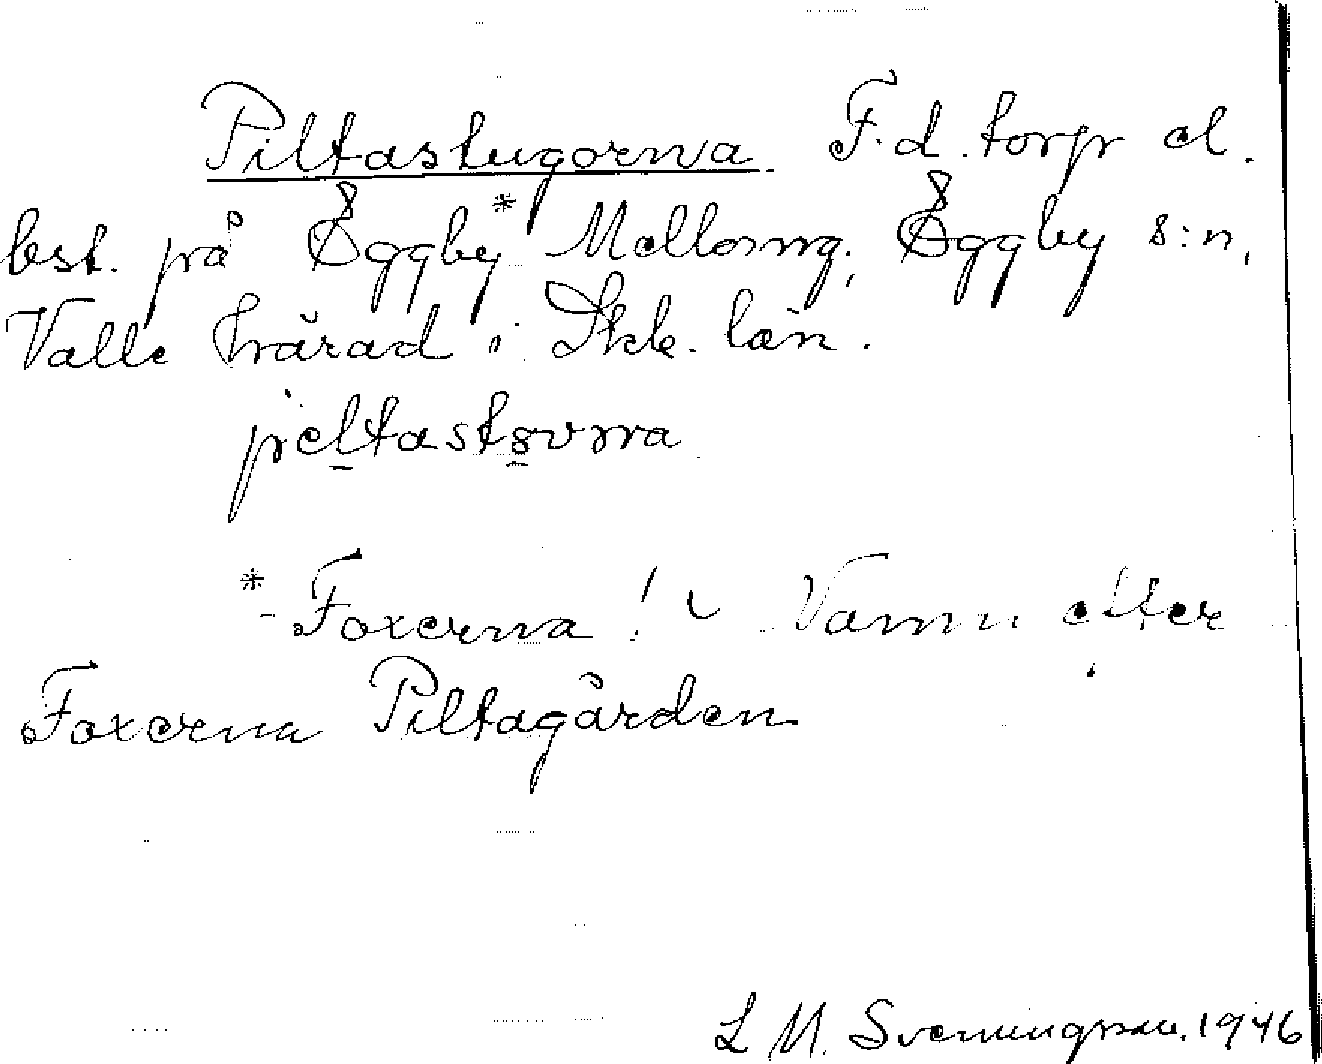 Piltastugorna F.d. torp el.
best. på Eggby* Mellomg., Eggby s:n,
Valle härad i Skb. län.
peltastovrna
*-Foxerna! Namn efter
Foxerna Piltagården
L M. Svenningsson. 1946